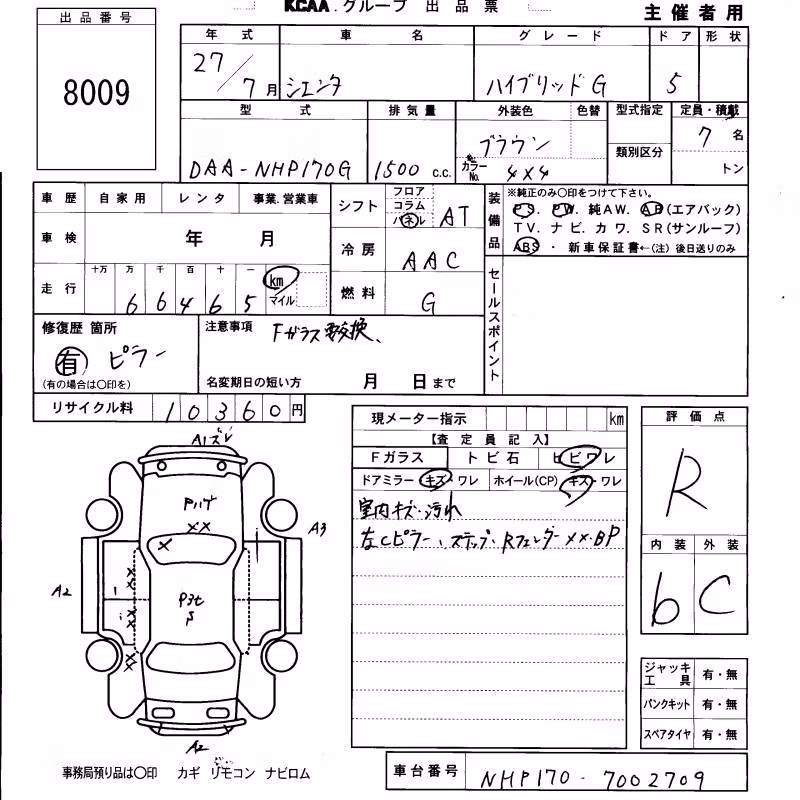 KCAA.グループ 出品票
主催者用
出品番号
8009
年式 車名 グレード ドア 形状
27/7月 シエンタ ハイブリッドG 5
型式 排気量 外装色 色替 型式指定 定員・積載
DAA-NHP170G 1500 c.c. ブラウン 7名
カラーNo. 4X4 類別区分 トン
車歴 自家用 レンタ 事業.営業車
シフト フロア コラム パネル AT
車検 年 月
冷房 AAC
走行 十万 万 千 百 十 一
66465 km マイル
燃料 G
装備品 ※純正のみ○印をつけて下さい。
PS. PW. 純AW. AB(エアバック)
TV. ナビ. カワ. SR(サンルーフ)
ABS ・ 新車保証書←(注)後日送りのみ
セールスポイント
修復歴 箇所
有 ピラー
(有の場合は○印を)
注意事項 Fガラス要交換、
名変期日の短い方 月 日まで
リサイクル料 10360円
現メーター指示 km
【査定員記入】
Fガラス トビ石 ヒビワレ
ドアミラー キズ・ワレ ホイール(CP) キズ・ワレ
室内キズ・汚れ
左Cピラー、ステップ・RフェンダーXX・BP
評価点
R
内装 外装
b C
A1ズレ
XX
X
A3
A2
A2
ジャッキ工具 有・無
パンクキット 有・無
スペアタイヤ 有・無
事務局預り品は○印 カギ リモコン ナビロム
車台番号 NHP170-7002709